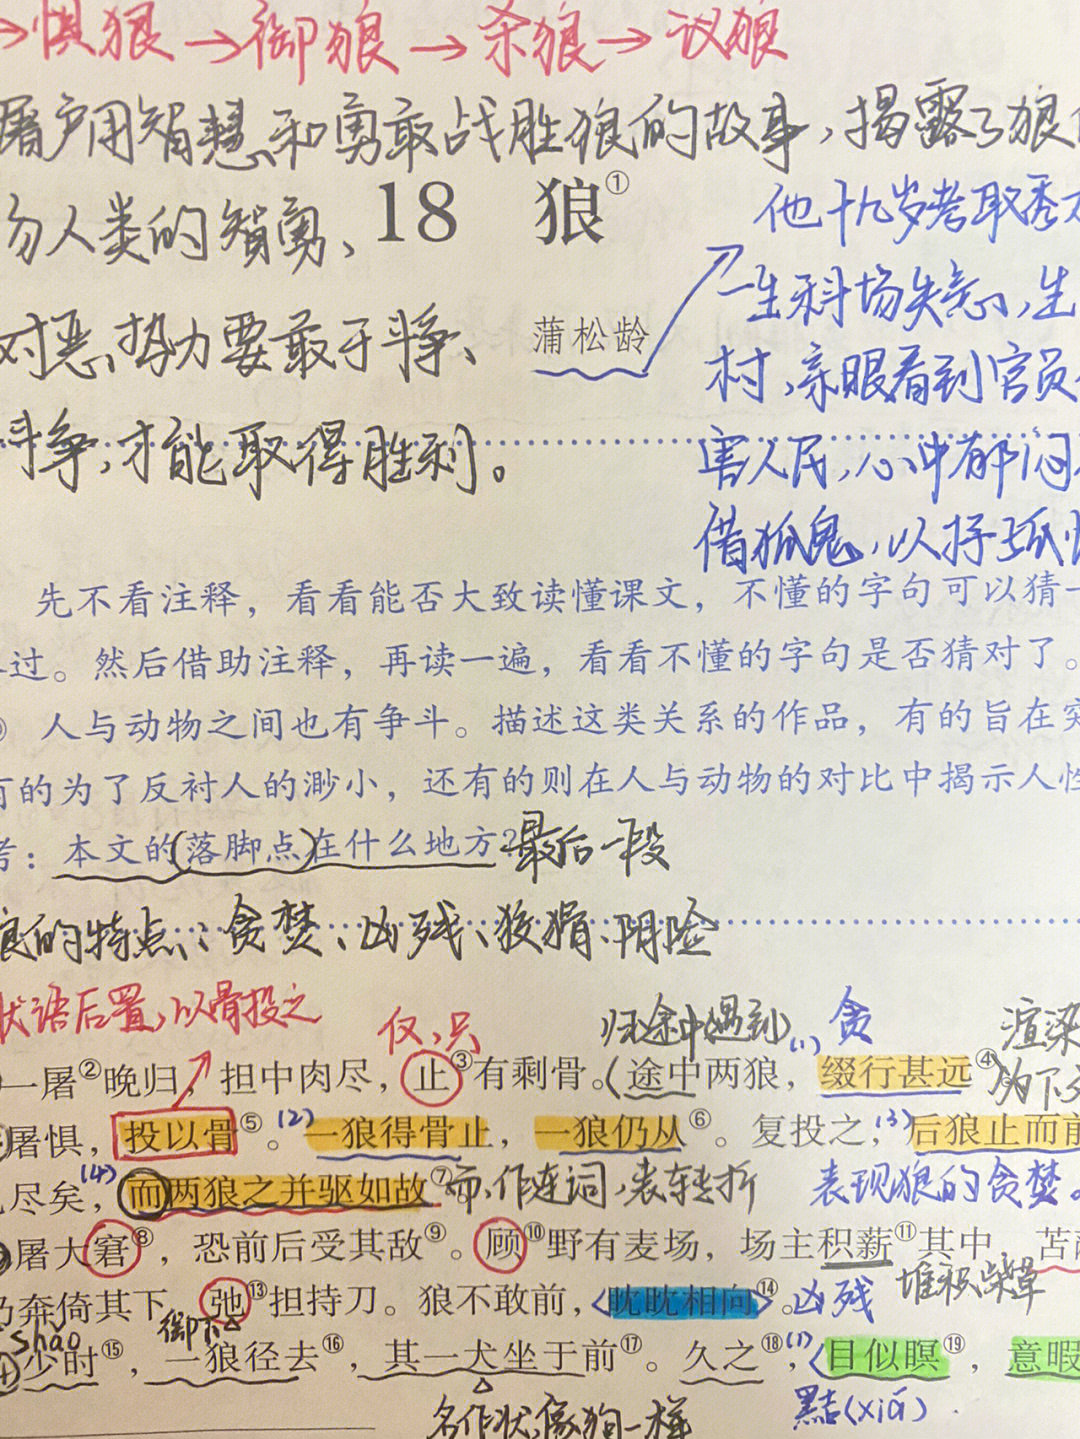 →惧狼→御狼→杀狼→议狼
屠户用智慧和勇敢战胜狼的故事,揭露了狼
人类的智勇、
18 狼①
他十九岁考取秀才
一生科场失意,生
对恶势力要敢于斗争、
蒲松龄
村,亲眼看到官员
斗争,才能取得胜利。
害人民,心中郁闷
借狐鬼,以抒孤
先不看注释，看看能否大致读懂课文，不懂的字句可以猜一
过。然后借助注释，再读一遍，看看不懂的字句是否猜对了。
人与动物之间也有争斗。描述这类关系的作品，有的旨在突
有的为了反衬人的渺小，还有的则在人与动物的对比中揭示人性
考：本文的(落脚点)在什么地方?最后一段
狼的特点:贪婪、凶残、狡猾、阴险
状语后置,以骨投之
仅,只
归途中遇到
(1)贪
渲染
一屠②晚归，担中肉尽，止③有剩骨。(途中两狼，缀行甚远④
为下
屠惧，投以骨⑤。(2)一狼得骨止，一狼仍从⑥。复投之，(3)后狼止而前
尽矣，(4)而两狼之并驱如故⑦而,作连词,表转折 表现狼的贪婪。
屠大窘⑧，恐前后受其敌⑨。顾⑩野有麦场，场主积薪⑪其中，苫蔽
堆积柴草
乃奔倚其下，弛⑬担持刀。狼不敢前，眈眈相向⑭。凶残
shǎo
卸下
少时⑮，一狼径去⑯，其一犬坐于前⑰。久之⑱，(1)目似瞑⑲，意暇
名作状,像狗一样
黠(xiá)